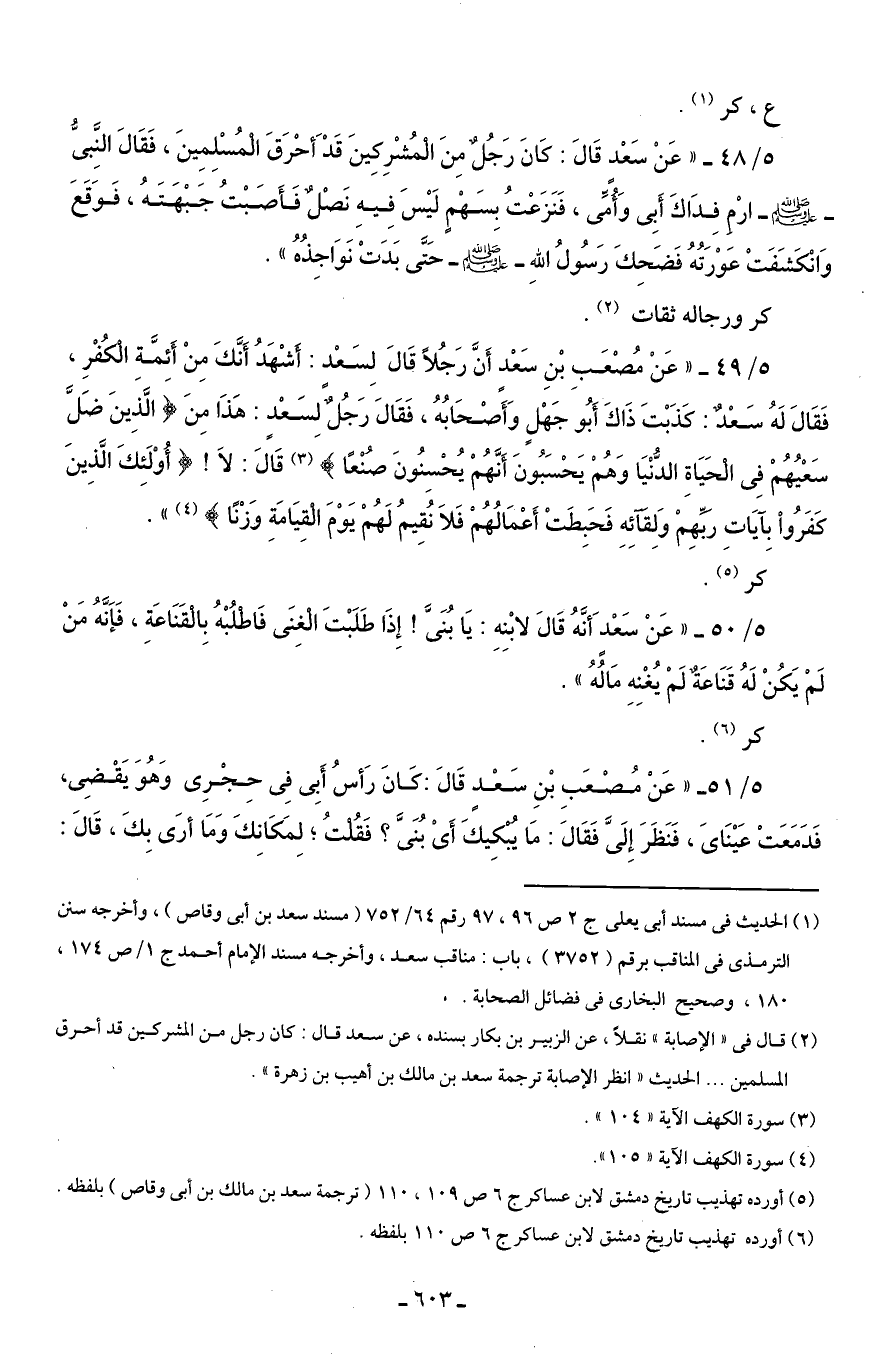 ع ، كر (١) .
٥/ ٤٨ ـ « عَنْ سَعْدٍ قَالَ : كَانَ رَجُلٌ مِنَ الْمُشْرِكِينَ قَدْ أَحْرَقَ الْمُسْلِمِينَ ، فَقَالَ النَّبِىُّ
ـ ﷺ ـ ارْمِ فِدَاكَ أَبِى وَأُمِّى ، فَنَزَعْتُ بِسَهْمٍ لَيْسَ فِيهِ نَصْلٌ فَأَصَبْتُ جَبْهَتَهُ ، فَوَقَعَ
وَانْكَشَفَتْ عَوْرَتُهُ فَضَحِكَ رَسُولُ اللهِ ـ ﷺ ـ حَتَّى بَدَتْ نَوَاجِذُهُ » .
كر ورجاله ثقات (٢) .
٥/ ٤٩ ـ « عَنْ مُصْعَبِ بْنِ سَعْدٍ أَنَّ رَجُلاً قَالَ لِسَعْدٍ : أَشْهَدُ أَنَّكَ مِنْ أَئِمَّةِ الْكُفْرِ ،
فَقَالَ لَهُ سَعْدٌ : كَذَبْتَ ذَاكَ أَبُو جَهْلٍ وَأَصْحَابُهُ ، فَقَالَ رَجُلٌ لِسَعْدٍ : هَذَا مِنَ ﴿ الَّذِينَ ضَلَّ
سَعْيُهُمْ فِى الْحَيَاةِ الدُّنْيَا وَهُمْ يَحْسَبُونَ أَنَّهُمْ يُحْسِنُونَ صُنْعًا ﴾ (٣) قَالَ : لاَ ! ﴿ أُوْلَئِكَ الَّذِينَ
كَفَرُواْ بِآيَاتِ رَبِّهِمْ وَلِقَآئِهِ فَحَبِطَتْ أَعْمَالُهُمْ فَلاَ نُقِيمُ لَهُمْ يَوْمَ الْقِيَامَةِ وَزْنًا ﴾ (٤) » .
كر (٥) .
٥/ ٥٠ ـ « عَنْ سَعْدٍ أَنَّهُ قَالَ لابْنِهِ : يَا بُنَىَّ ! إِذَا طَلَبْتَ الْغِنَى فَاطْلُبْهُ بِالْقَنَاعَةِ ، فَإِنَّهُ مَنْ
لَمْ يَكُنْ لَهُ قَنَاعَةٌ لَمْ يُغْنِهِ مَالُهُ » .
كر (٦) .
٥/ ٥١ـ « عَنْ مُصْعَبِ بْنِ سَعْدٍ قَالَ :كَانَ رَأْسُ أَبِى فِى حِجْرِى وَهُوَ يَقْضِى،
فَدَمَعَتْ عَيْنَاىَ ، فَنَظَرَ إِلَىَّ فَقَالَ : مَا يُبْكِيكَ أَىْ بُنَىَّ ؟ فَقُلْتُ ؛ لِمَكَانِكَ وَمَا أَرَى بِكَ ، قَالَ :
(١) الحديث فى مسند أبى يعلى ج ٢ ص ٩٦ ، ٩٧ رقم ٦٤/ ٧٥٢ ( مسند سعد بن أبى وقاص ) ، وأخرجه سنن
الترمذى فى المناقب برقم ( ٣٧٥٢ ) ، باب : مناقب سعد ، وأخرجه مسند الإمام أحمد ج ١/ ص ١٧٤ ،
١٨٠ ، وصحيح البخارى فى فضائل الصحابة .
(٢) قال فى « الإصابة » نقلاً ، عن الزبير بن بكار بسنده ، عن سعد قال : كان رجل من المشركين قد أحرق
المسلمين ... الحديث « انظر الإصابة ترجمة سعد بن مالك بن أهيب بن زهرة » .
(٣) سورة الكهف الآية « ١٠٤ » .
(٤) سورة الكهف الآية « ١٠٥ ».
(٥) أورده تهذيب تاريخ دمشق لابن عساكر ج ٦ ص ١٠٩ ، ١١٠ ( ترجمة سعد بن مالك بن أبى وقاص ) بلفظه .
(٦) أورده تهذيب تاريخ دمشق لابن عساكر ج ٦ ص ١١٠ بلفظه .
ـ ٦٠٣ ـ